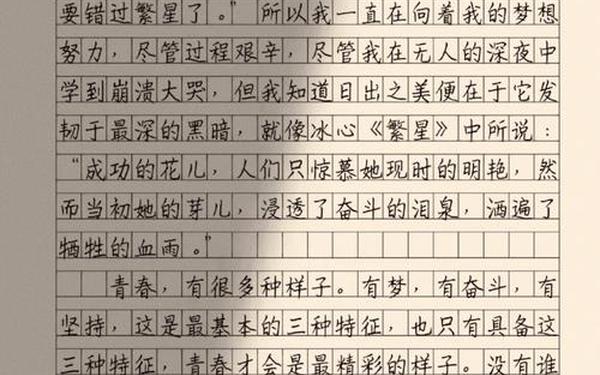 要错过繁星了。”所以我一直在向着我的梦想
努力，尽管过程艰辛，尽管我在无人的深夜中
学到崩溃大哭，但我知道日出之美便在于它发
韧于最深的黑暗，就像冰心《繁星》中所说：
“成功的花儿，人们只惊慕她现时的明艳，然
而当初她的芽儿，浸透了奋斗的泪泉，洒遍了
牺牲的血雨。”
青春，有很多种样子。有梦，有奋斗，有
坚持，这是最基本的三种特征，也只有具备这
三种特征，青春才会是最精彩的样子。没有谁